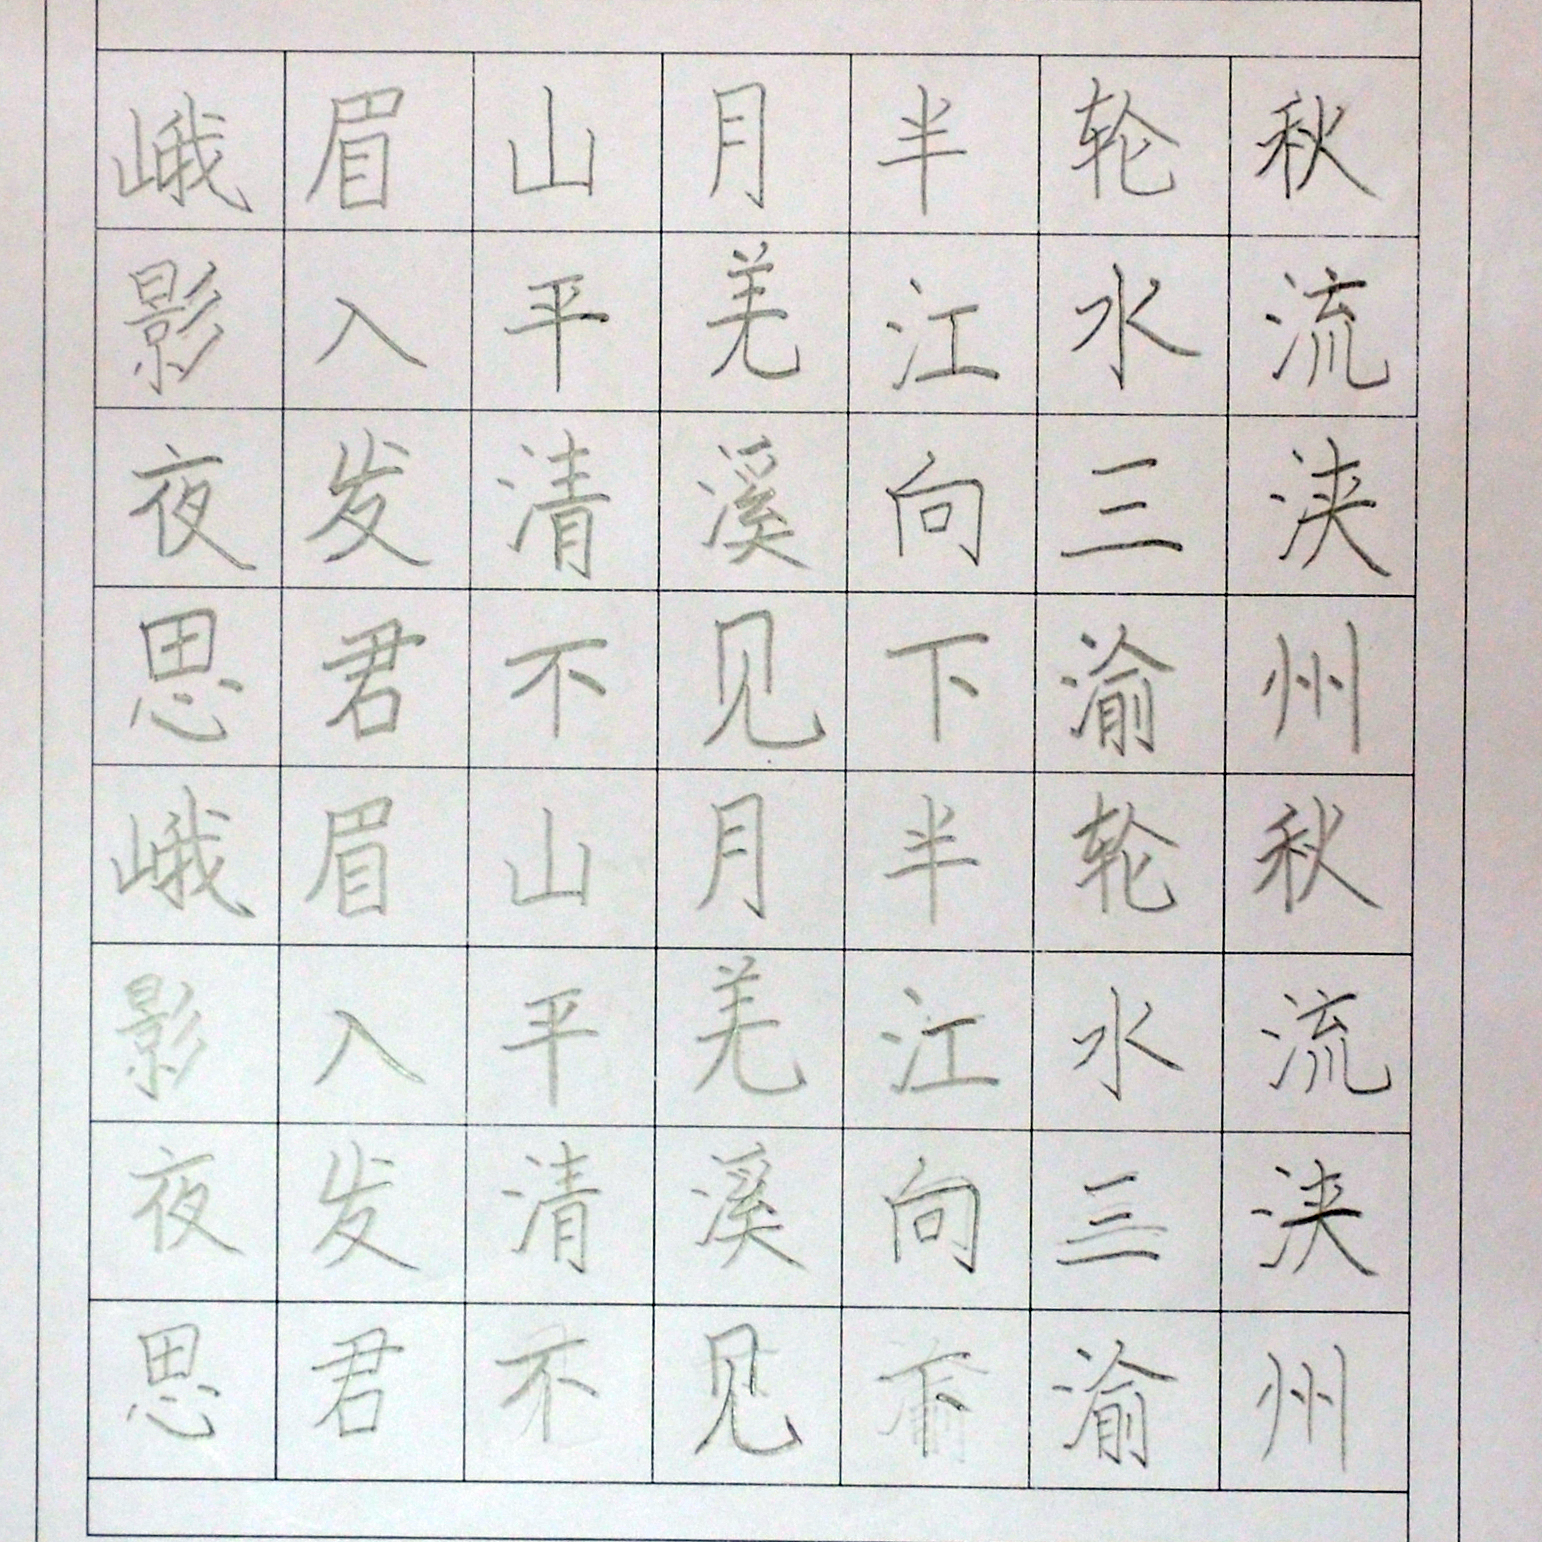 峨眉山月半轮秋
影入平羌江水流
夜发清溪向三浃
思君不见下渝州
峨眉山月半轮秋
影入平羌江水流
夜发清溪向三浃
思君不见下渝州